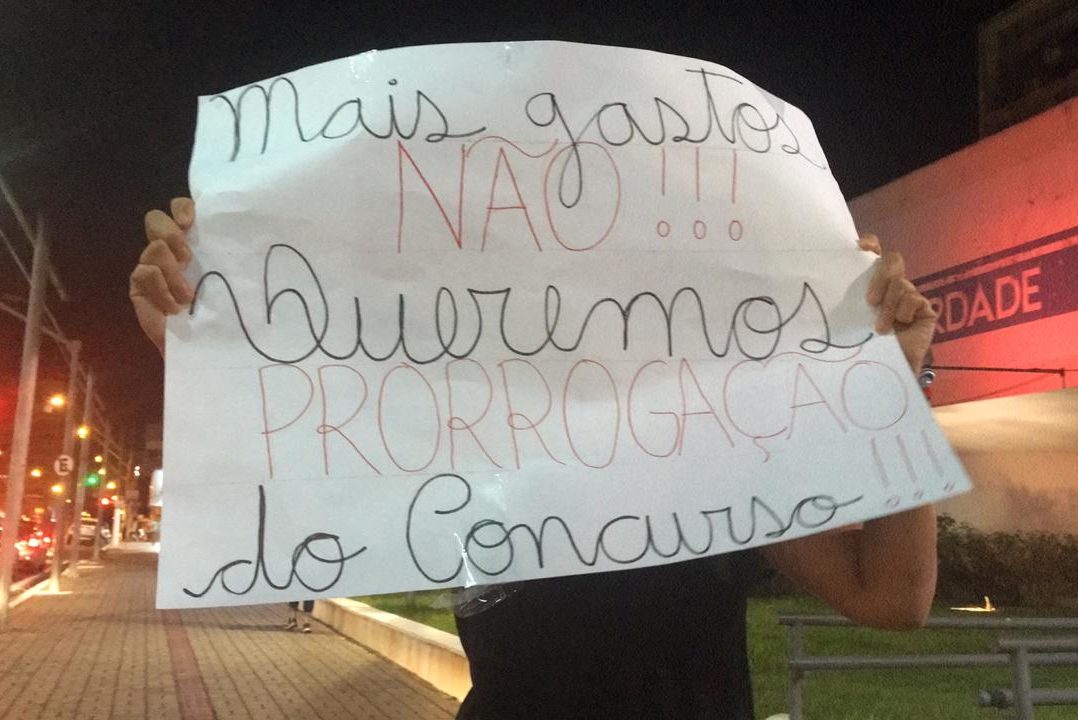 Mais gastos
NÃO!!!
Queremos
PRORROGAÇÃO
do Concurso!!!
RDADE
E